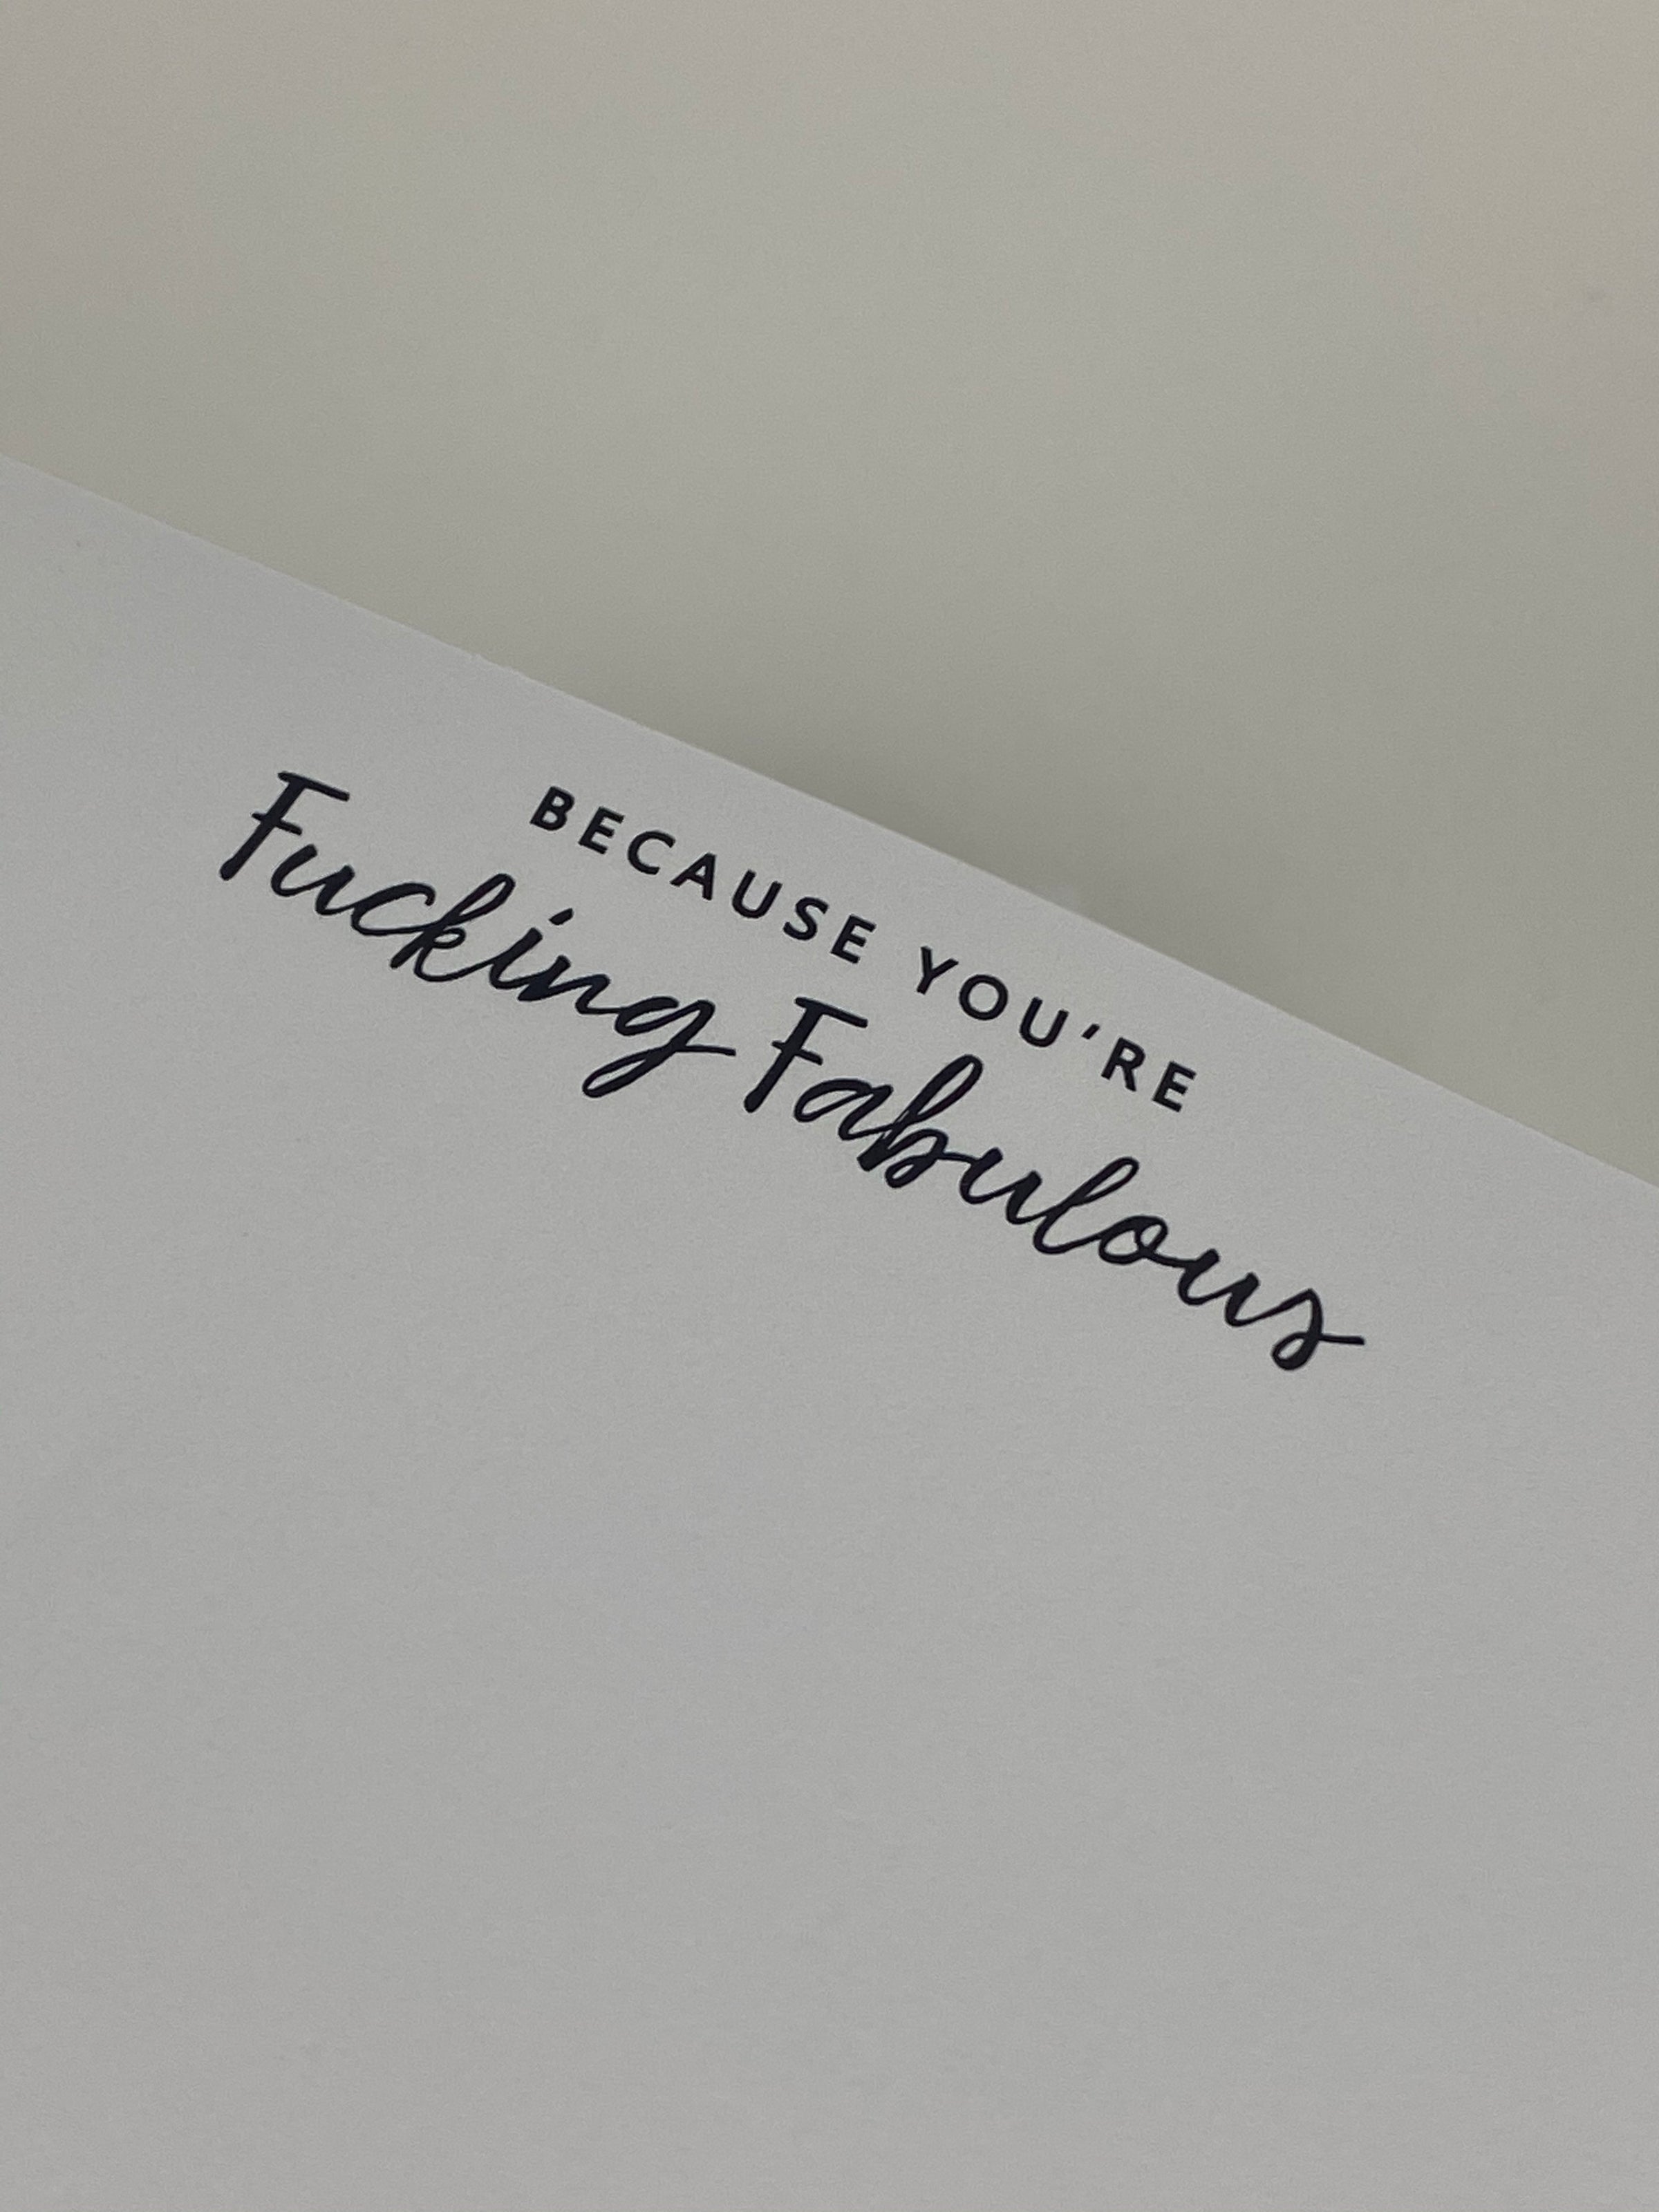 BECAUSE YOU'RE
Fucking Fabulous